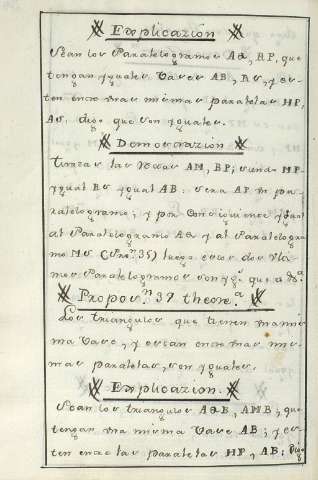 Explicazion
Sean los Paralelogramos AQ, RP, que
tengan yguales Vases AB, RS, y es-
ten entre unas mismas paralelas MP,
AS, digo que son yguales.
Demostrazion
Tirense las rectas AM, BP; siendo MP
ygual RS ygual AB: sera AP un pa-
ralelogramo; y por Consiquiencia ygual
al Paralelogramo AQ y al Paralelogra
mo MS (Pro. 35) luego estos dos
mos Paralelogramos son yg.s que a
Propos.n 37 theore.a
Los triangulos que tienen una mis
ma Vase, y estan entre unas mis
mas paralelas, son yguales.
Explicazion.
Sean los triangulos AQB, AMB; que
tengan una misma Vase AB; y es-
ten entre las paralelas MP, AB: Digo